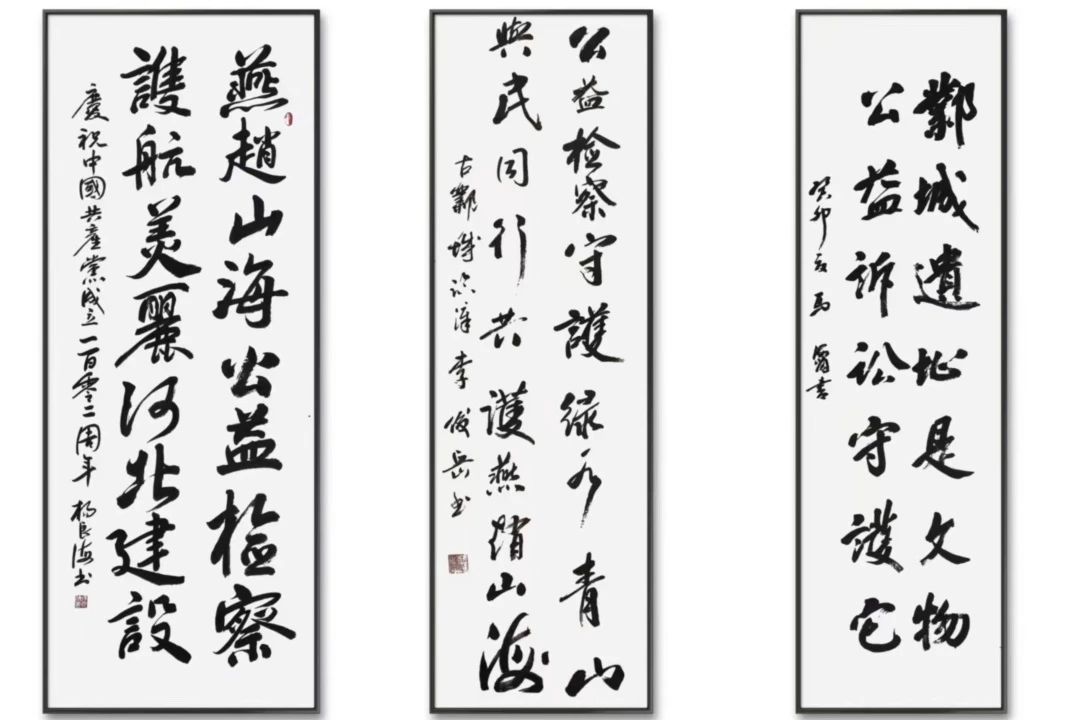 燕趙山海公益檢察
護航美麗河北建設
慶祝中國共產黨成立一百零二周年 楊良海书
公益检察守護绿水青山
與民同行共護燕趙山海
古鄴城临漳李俊岳书
鄴城遺址是文物
公益訴訟守護它
癸卯夏馬 書